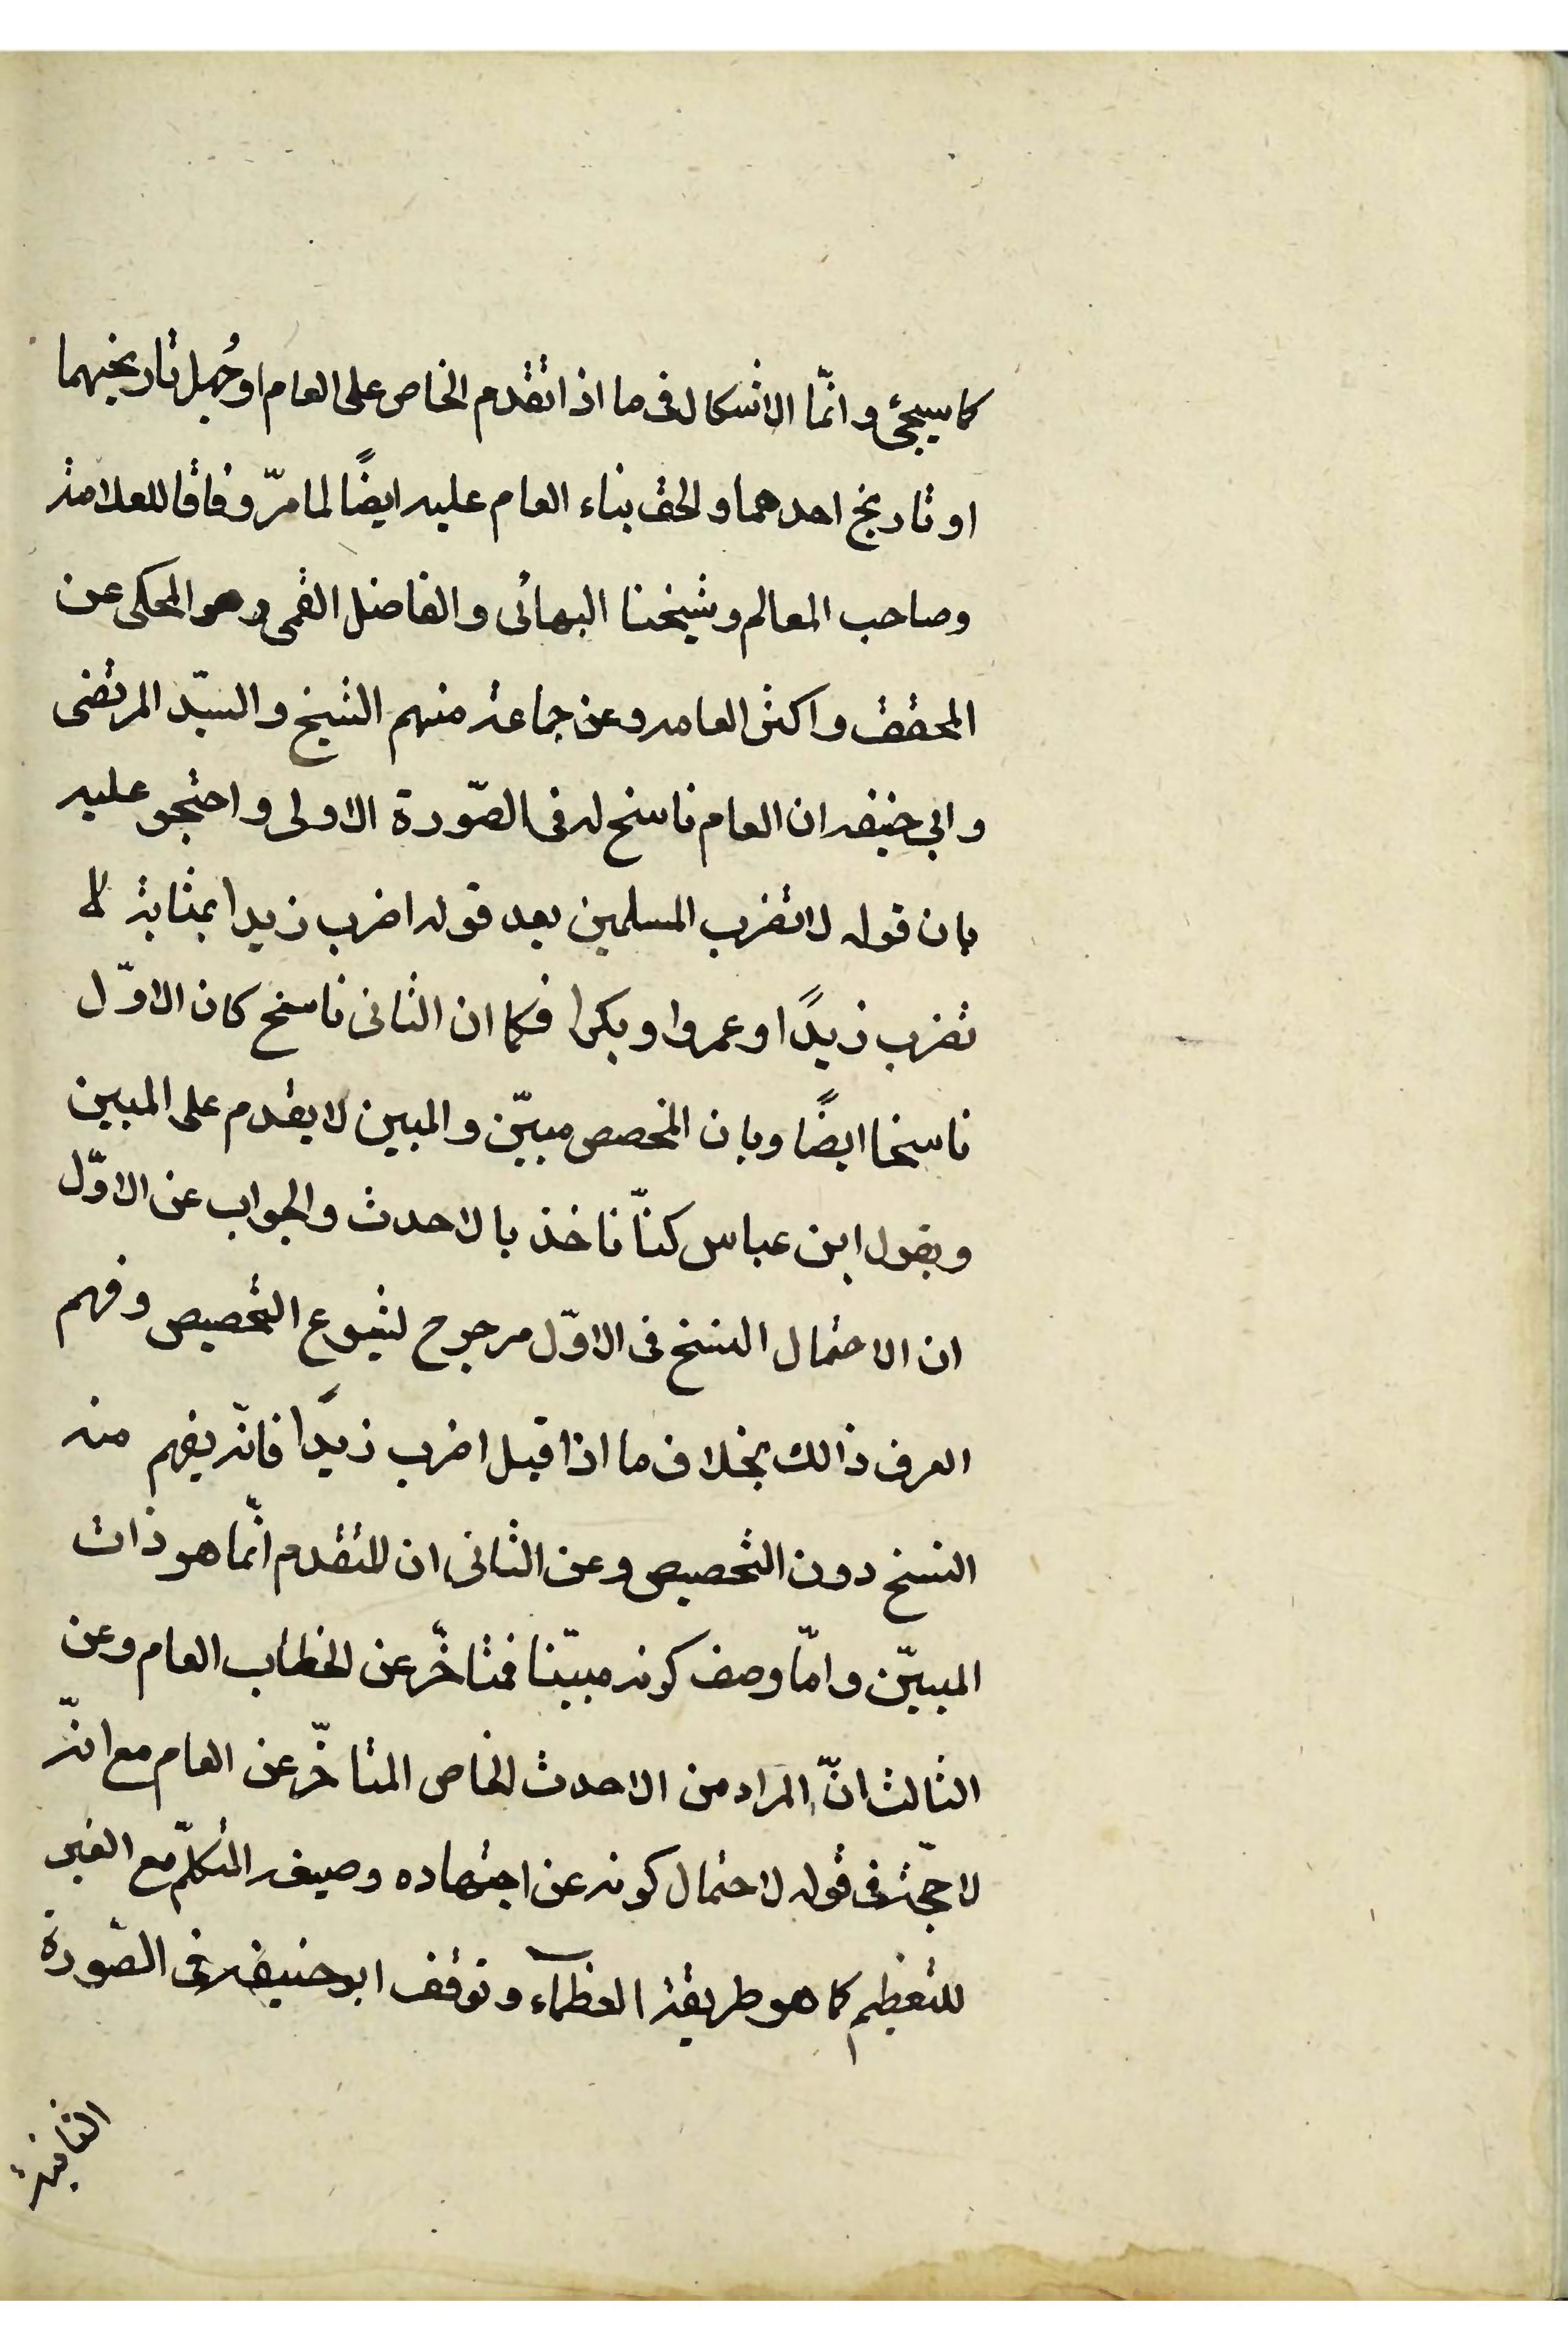 كما سيجئ و انّما الاشكال فى ما اذا تقدم الخاص على العام او جُهل تاريخيهما
او تاريخ احدهما و الحق بناء العام عليه ايضًا لما مرّ وفاقا للعلامة
وصاحب المعالم و شيخنا البهائى و الفاضل القمى وهو المحكى عن
المحقق و اكثر العامه وعن جماعة منهم الشيخ و السيّد المرتضى
و ابي حنيفه ان العام ناسخ له فى الصّورة الاولى و احتجو عليه
بان قوله لا تضرب المسلمين بعد قوله اضرب زيدا بمثابة لا
تضرب زيدًا و عمروا و بكرا فكما ان الثانى ناسخ كان الاوّل
ناسخا ايضًا و بان المخصص مبيّن و المبين لا يقدم على المبين
و بقول ابن عباس كنّا ناخذ بالاحدث و الجواب عن الاوّل
ان الاحتمال النسخ فى الاوّل مرجوح لشيوع التخصيص و فهم
العرف ذالك بخلاف ما اذا قيل اضرب زيدًا فانّه يفهم منه
النسخ دون التخصيص و عن الثانى ان المتقدم انّما هو ذات
المبيّن و امّا وصف كونه مبيّنا فمتاخّر عن الخطاب العام وعن
الثالث انّ المراد من الاحدث الخاص المتاخّر عن العام مع انّه
لا حجّة فى قوله لاحتمال كونه عن اجتهاده و صيغه المتكلّم مع الغير
للتعظيم كما هو طريقة العظماء و توقف ابو حنيفه فى الصّورة
الثانية